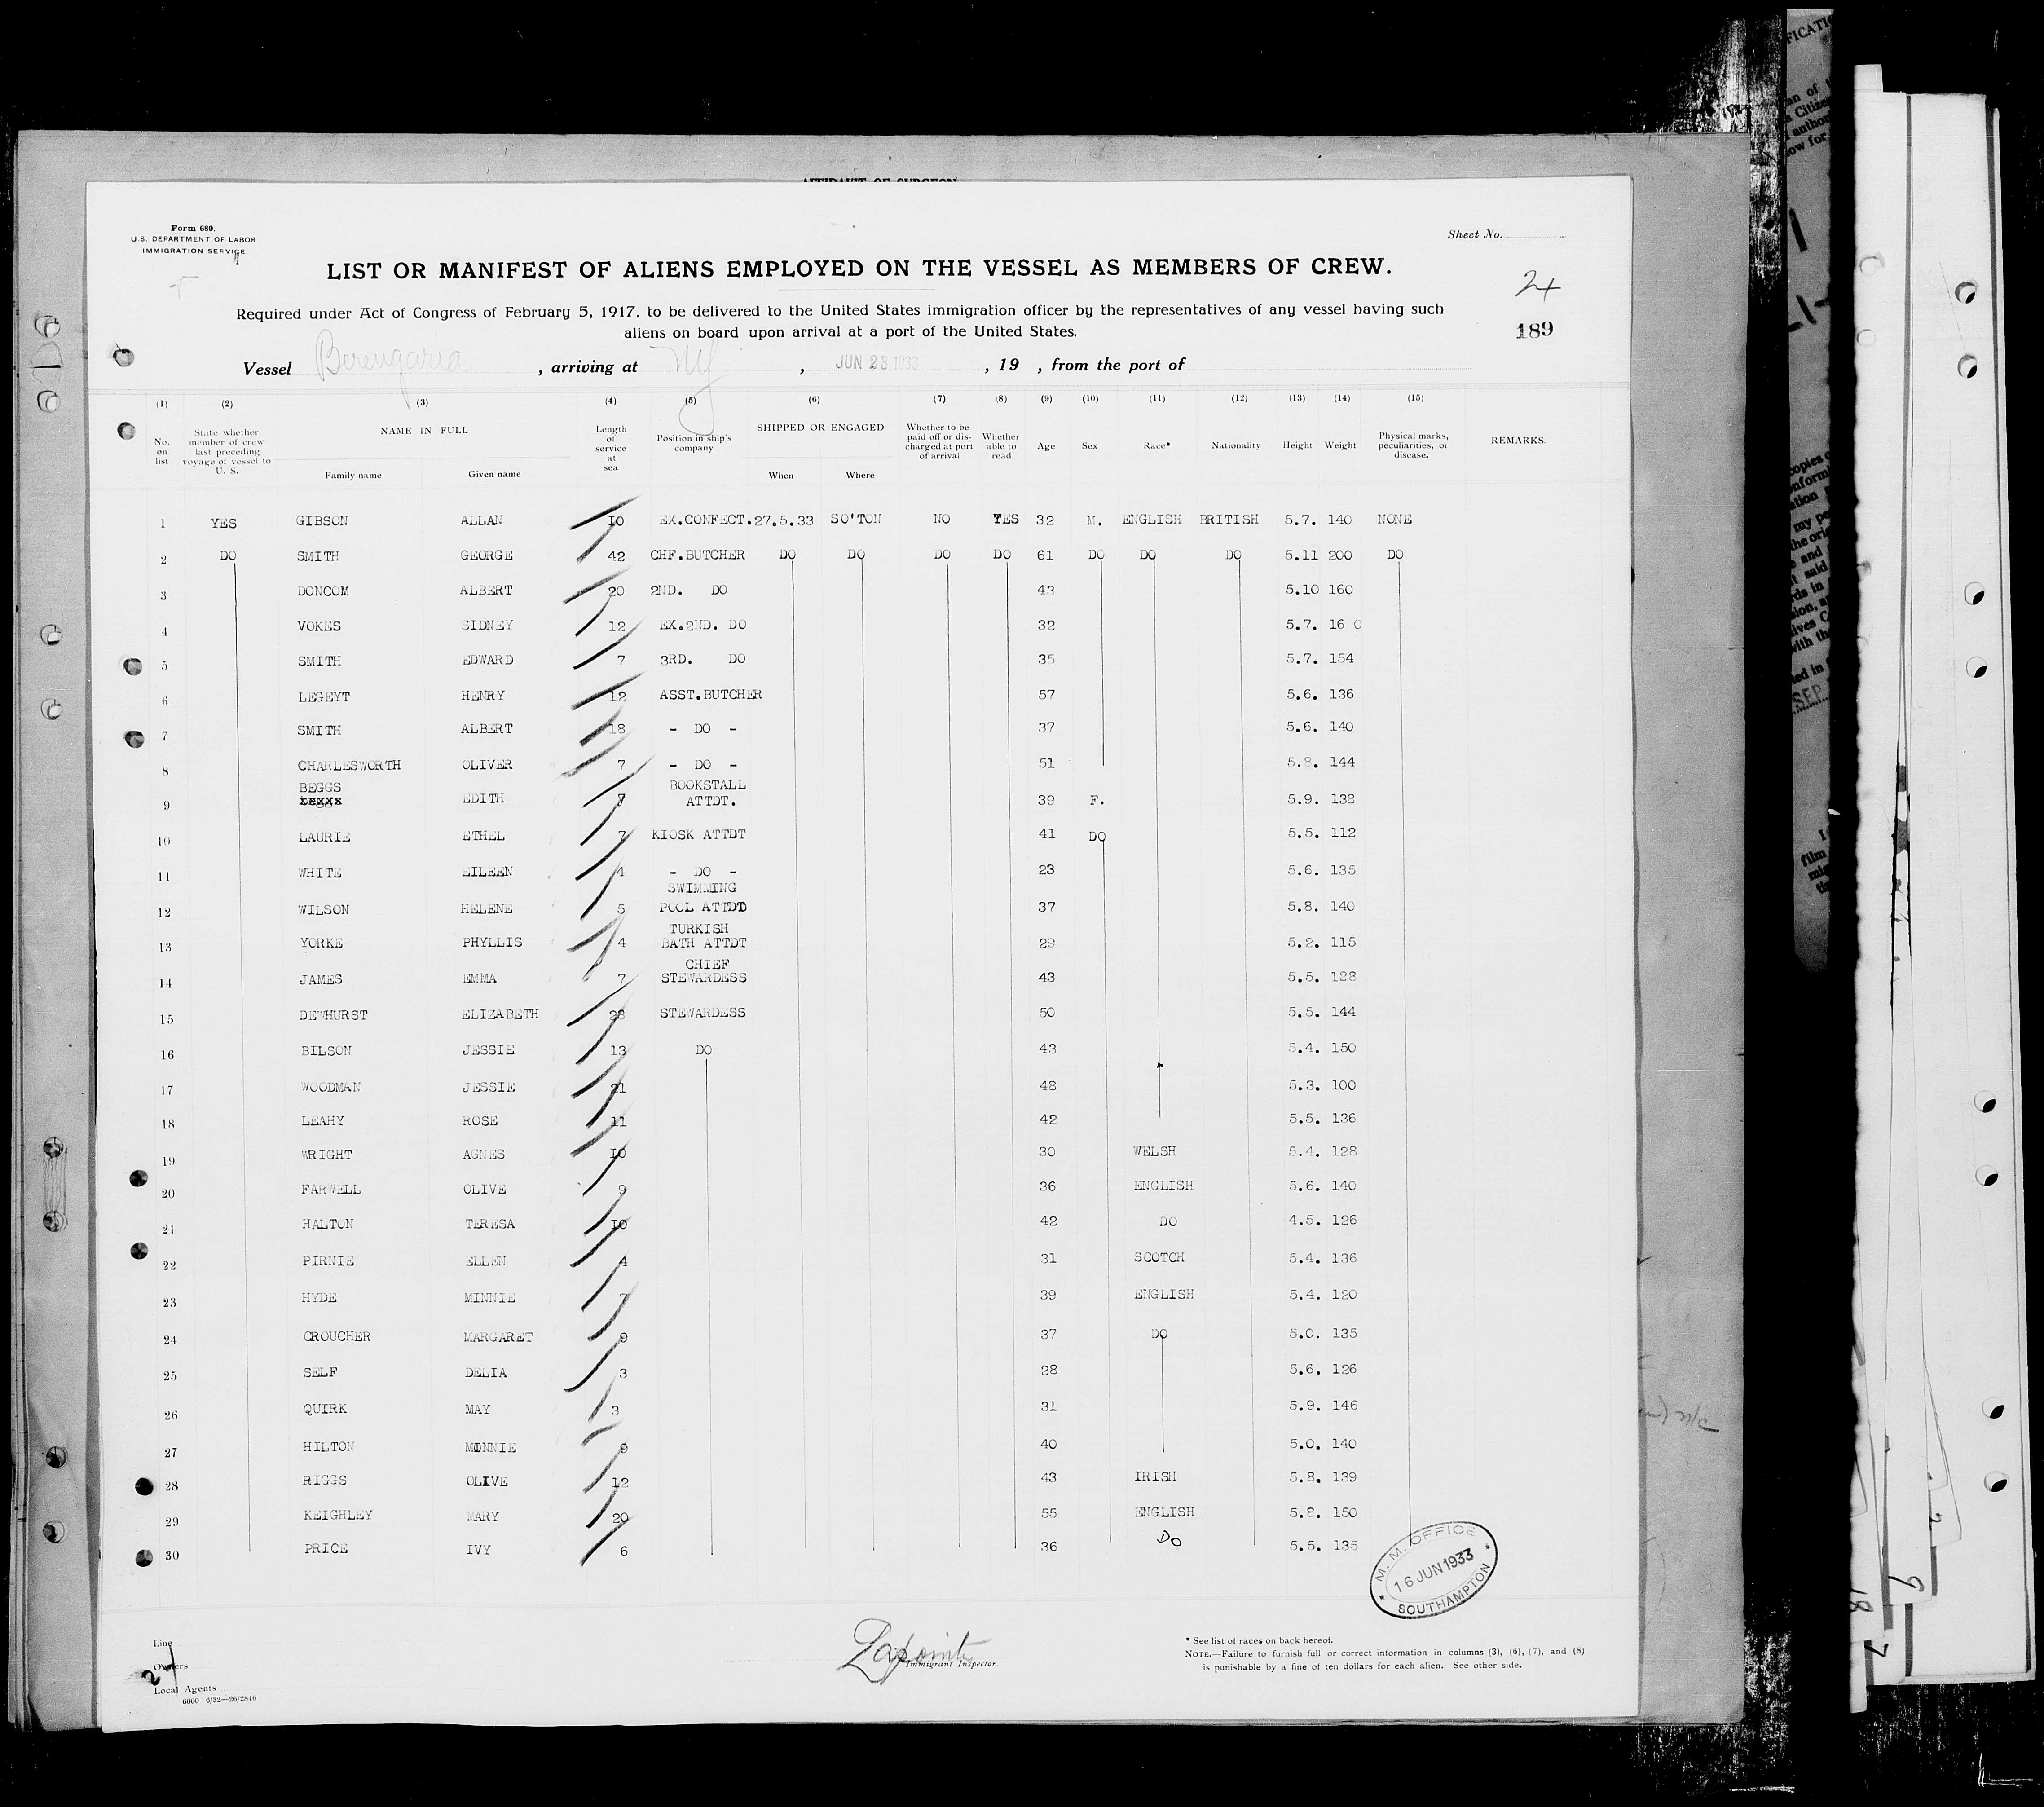 AFFIDAVIT OF SURGEON
Form 680.
U.S. DEPARTMENT OF LABOR
IMMIGRATION SERVICE
Sheet No.
LIST OR MANIFEST OF ALIENS EMPLOYED ON THE VESSEL AS MEMBERS OF CREW.
24
Required under Act of Congress of February 5, 1917, to be delivered to the United States immigration officer by the representatives of any vessel having such
aliens on board upon arrival at a port of the United States.
189
Vessel Berengaria , arriving at NY , JUN 23 1933 , 19 , from the port of
(1) (2) (3) (4) (5) (6) (7) (8) (9) (10) (11) (12) (13) (14) (15)
No. on list State whether member of crew last preceding voyage of vessel to U. S. NAME IN FULL Family name Given name Length of service at sea Position in ship's company SHIPPED OR ENGAGED When Where Whether to be paid off or discharged at port of arrival Whether able to read Age Sex Race* Nationality Height Weight Physical marks, peculiarities, or disease. REMARKS.
1 YES GIBSON ALLAN 10 EX.CONFECT. 27.5.33 SO'TON NO YES 32 M. ENGLISH BRITISH 5.7. 140 NONE
2 DO SMITH GEORGE 42 CHF.BUTCHER DO DO DO DO 61 DO DO DO 5.11 200 DO
3 DONCOM ALBERT 20 2ND. DO 43 5.10 160
4 VOKES SIDNEY 12 EX.2ND. DO 32 5.7. 16 0
5 SMITH EDWARD 7 3RD. DO 35 5.7. 154
6 LEGEYT HENRY 12 ASST.BUTCHER 57 5.6. 136
7 SMITH ALBERT 18 - DO - 37 5.6. 140
8 CHARLESWORTH OLIVER 7 - DO - 51 5.8. 144
BEGGS BOOKSTALL
9 EDITH 7 ATTDT. 39 F. 5.9. 138
10 LAURIE ETHEL 7 KIOSK ATTDT 41 DO 5.5. 112
11 WHITE EILEEN 4 - DO - 23 5.6. 135
SWIMMING
12 WILSON HELENE 5 POOL ATTDT 37 5.8. 140
TURKISH
13 YORKE PHYLLIS 4 BATH ATTDT 29 5.2. 115
CHIEF
14 JAMES EMMA 7 STEWARDESS 43 5.5. 128
15 DEWHURST ELIZABETH 23 STEWARDESS 50 5.5. 144
16 BILSON JESSIE 13 DO 43 5.4. 150
17 WOODMAN JESSIE 21 48 5.3. 100
18 LEAHY ROSE 11 42 5.5. 136
19 WRIGHT AGNES 10 30 WELSH 5.4. 128
20 FARWELL OLIVE 9 36 ENGLISH 5.6. 140
21 HALTON TERESA 10 42 DO 4.5. 126
22 PIRNIE ELLEN 4 31 SCOTCH 5.4. 136
23 HYDE MINNIE 7 39 ENGLISH 5.4. 120
24 CROUCHER MARGARET 9 37 DO 5.0. 135
25 SELF DELIA 3 28 5.6. 126
26 QUIRK MAY 3 31 5.9. 146
27 HILTON MINNIE 9 40 5.0. 140
28 RIGGS OLIVE 12 43 IRISH 5.8. 139
29 KEIGHLEY MARY 20 55 ENGLISH 5.8. 150
30 PRICE IVY 6 36 DO 5.5. 135
M. M. OFFICE
16 JUN 1933
SOUTHAMPTON
Line
Owners
Local Agents
6000 6/32—26/2846
Lapointe
Immigrant Inspector.
* See list of races on back hereof.
NOTE.—Failure to furnish full or correct information in columns (3), (6), (7), and (8)
is punishable by a fine of ten dollars for each alien. See other side.